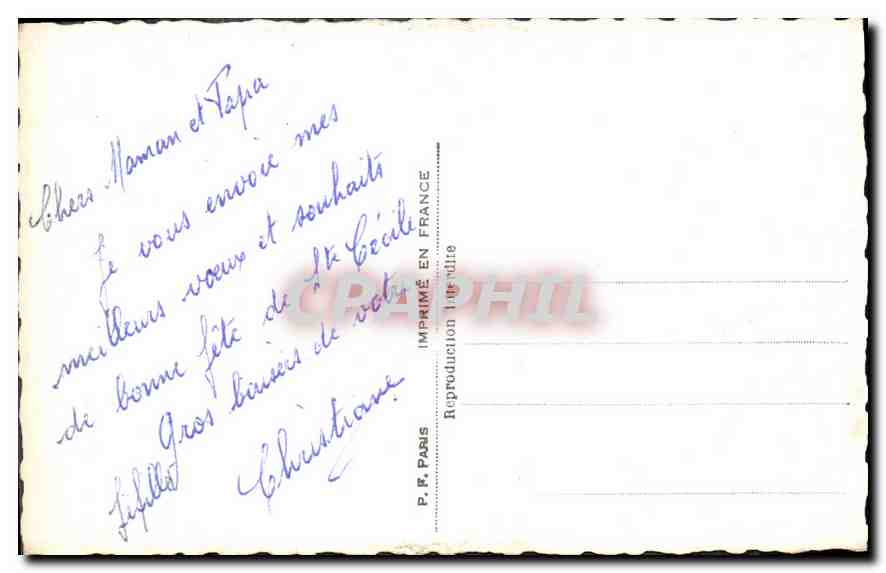 Chers Maman et Papa
Je vous envoie mes
meilleurs vœux et souhaits
de bonne fête de Ste Cécile
Gros baisers de votre
fifille Christiane.
P. F. PARIS IMPRIMÉ EN FRANCE
Reproduction interdite
CPAPHIL